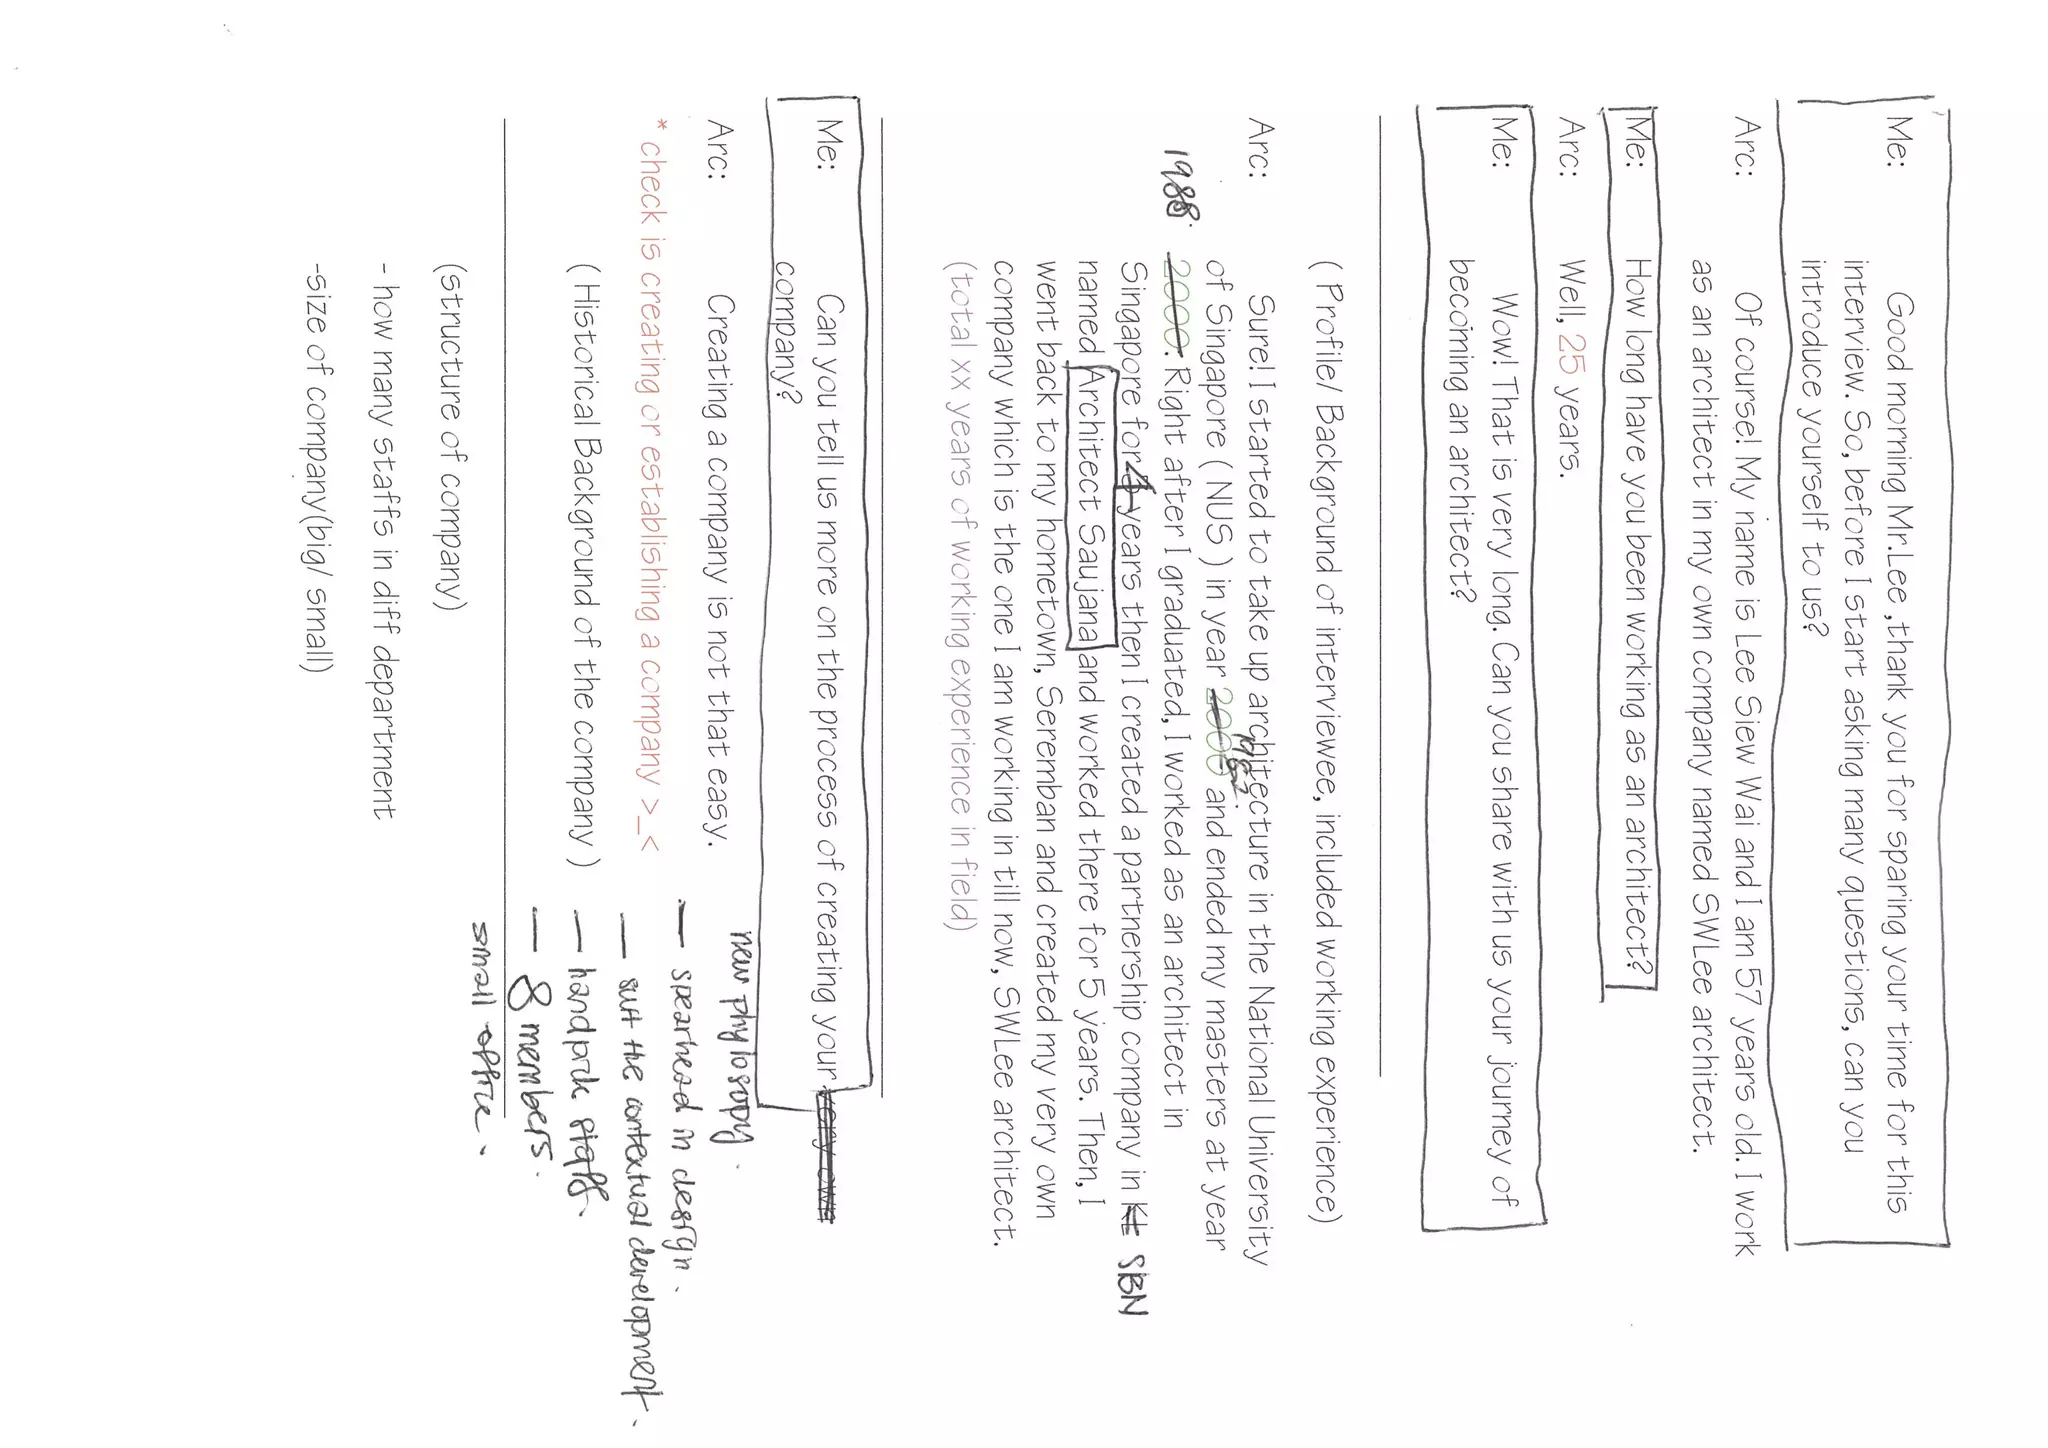 Me: Good morning Mr.Lee ,thank you for sparing your time for this
interview. So, before I start asking many questions, can you
introduce yourself to us?
Arc: Of course! My name is Lee Siew Wai and I am 57 years old. I work
as an architect in my own company named SWLee architect.
Me: How long have you been working as an architect?
Arc: Well, 25 years.
Me: Wow! That is very long. Can you share with us your journey of
becoming an architect?
( Profile/ Background of interviewee, included working experience)
Arc: Sure! I started to take up architecture in the National University
of Singapore ( NUS ) in year 2000 1982. and ended my masters at year
1988. 2000. Right after I graduated, I worked as an architect in
Singapore for 4 years then I created a partnership company in KL SBN
named Architect Saujana and worked there for 5 years. Then, I
went back to my hometown, Seremban and created my very own
company which is the one I am working in till now, SWLee architect.
(total xx years of working experience in field)
Me: Can you tell us more on the process of creating your very own
company?
Arc: Creating a company is not that easy.
* check is creating or establishing a company >_<
( Historical Background of the company )
new phylosopy.
— spearhead in design.
— suit the contextual development.
— handpick staff.
— 8 members.
small office.
(structure of company)
- how many staffs in diff department
-size of company(big/ small)